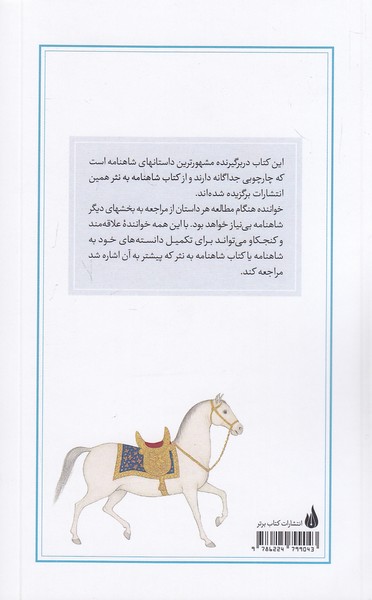 این کتاب دربرگیرنده مشهورترین داستانهای شاهنامه است
که چارچوبی جداگانه دارند و از کتاب شاهنامه به نثر همین
انتشارات برگزیده شده‌اند.
خواننده هنگام مطالعه هر داستان از مراجعه به بخشهای دیگر
شاهنامه بی‌نیاز خواهد بود. با این همه خوانندهٔ علاقه‌مند
و کنجکاو می‌تواند برای تکمیل دانسته‌های خود به
شاهنامه یا کتاب شاهنامه به نثر که پیشتر به آن اشاره شد
مراجعه کند.
انتشارات کتاب برتر
9 786224 799043